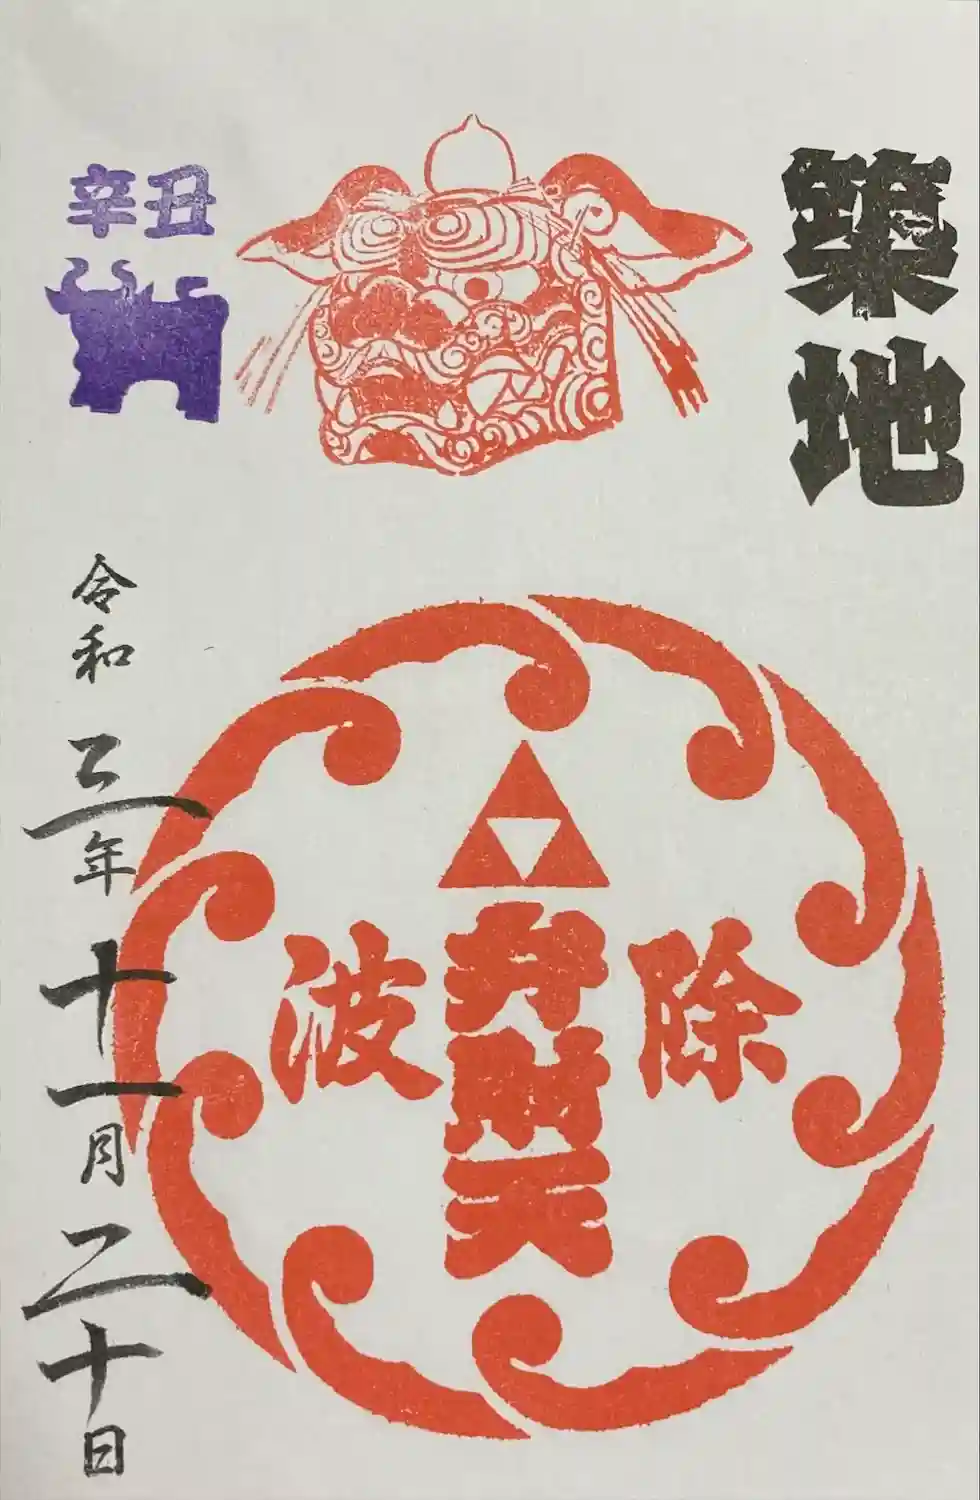 築地
辛丑
除
弁財天
波
令和三年十一月二十日